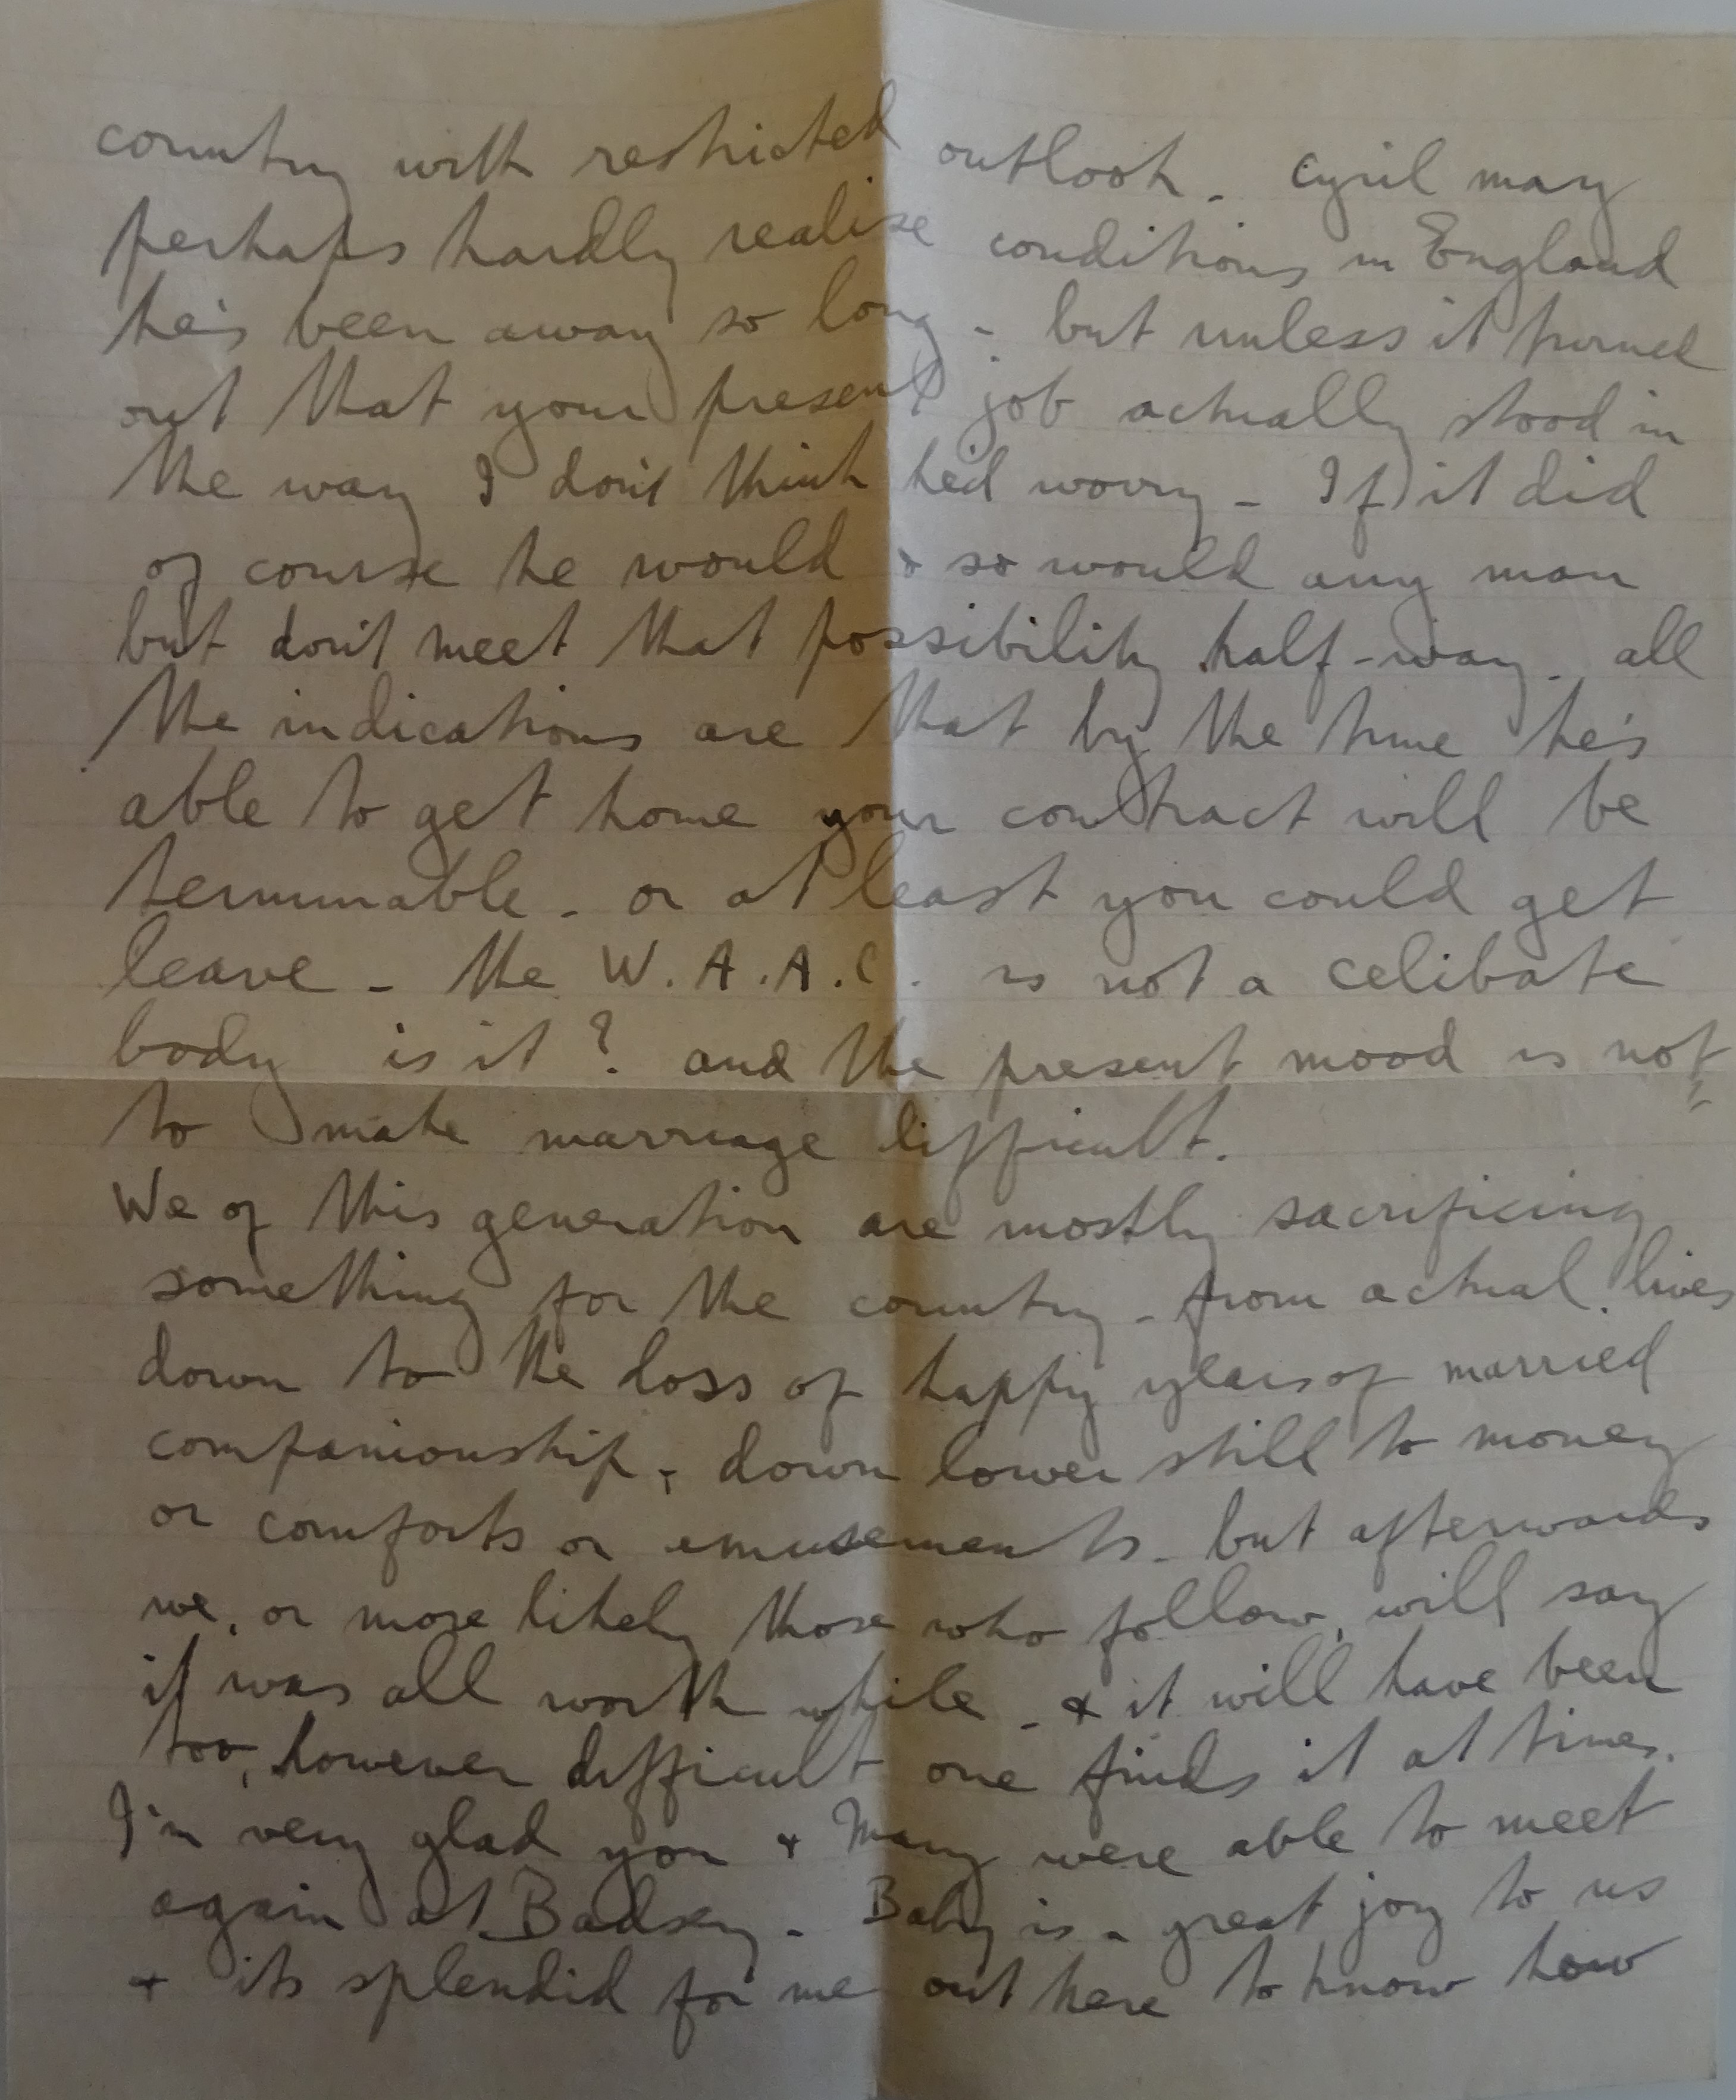 country with restricted outlook - Cyril may
perhaps hardly realise conditions in England
he's been away so long - but unless it turned
out that your present job actually stood in
the way I don't think he'd worry - If it did
of course he would & so would any man
but don't meet that possibility half-way - all
the indications are that by the time he's
able to get home your contract will be
terminable - or at least you could get
leave - the W.A.A.C. is not a celibate
body is it? and the present mood is not
to make marriage difficult.
We of this generation are mostly sacrificing
something for the country - from actual lives
down to the loss of happy years of married
companionship, down lower still to money
or comforts or amusements - but afterwards
we, or more likely those who follow, will say
it was all worth while - & it will have been
too, however difficult one finds it at times.
I'm very glad you & Mary were able to meet
again at Badsey - Baby is a great joy to us
& its splendid for me out here to know how